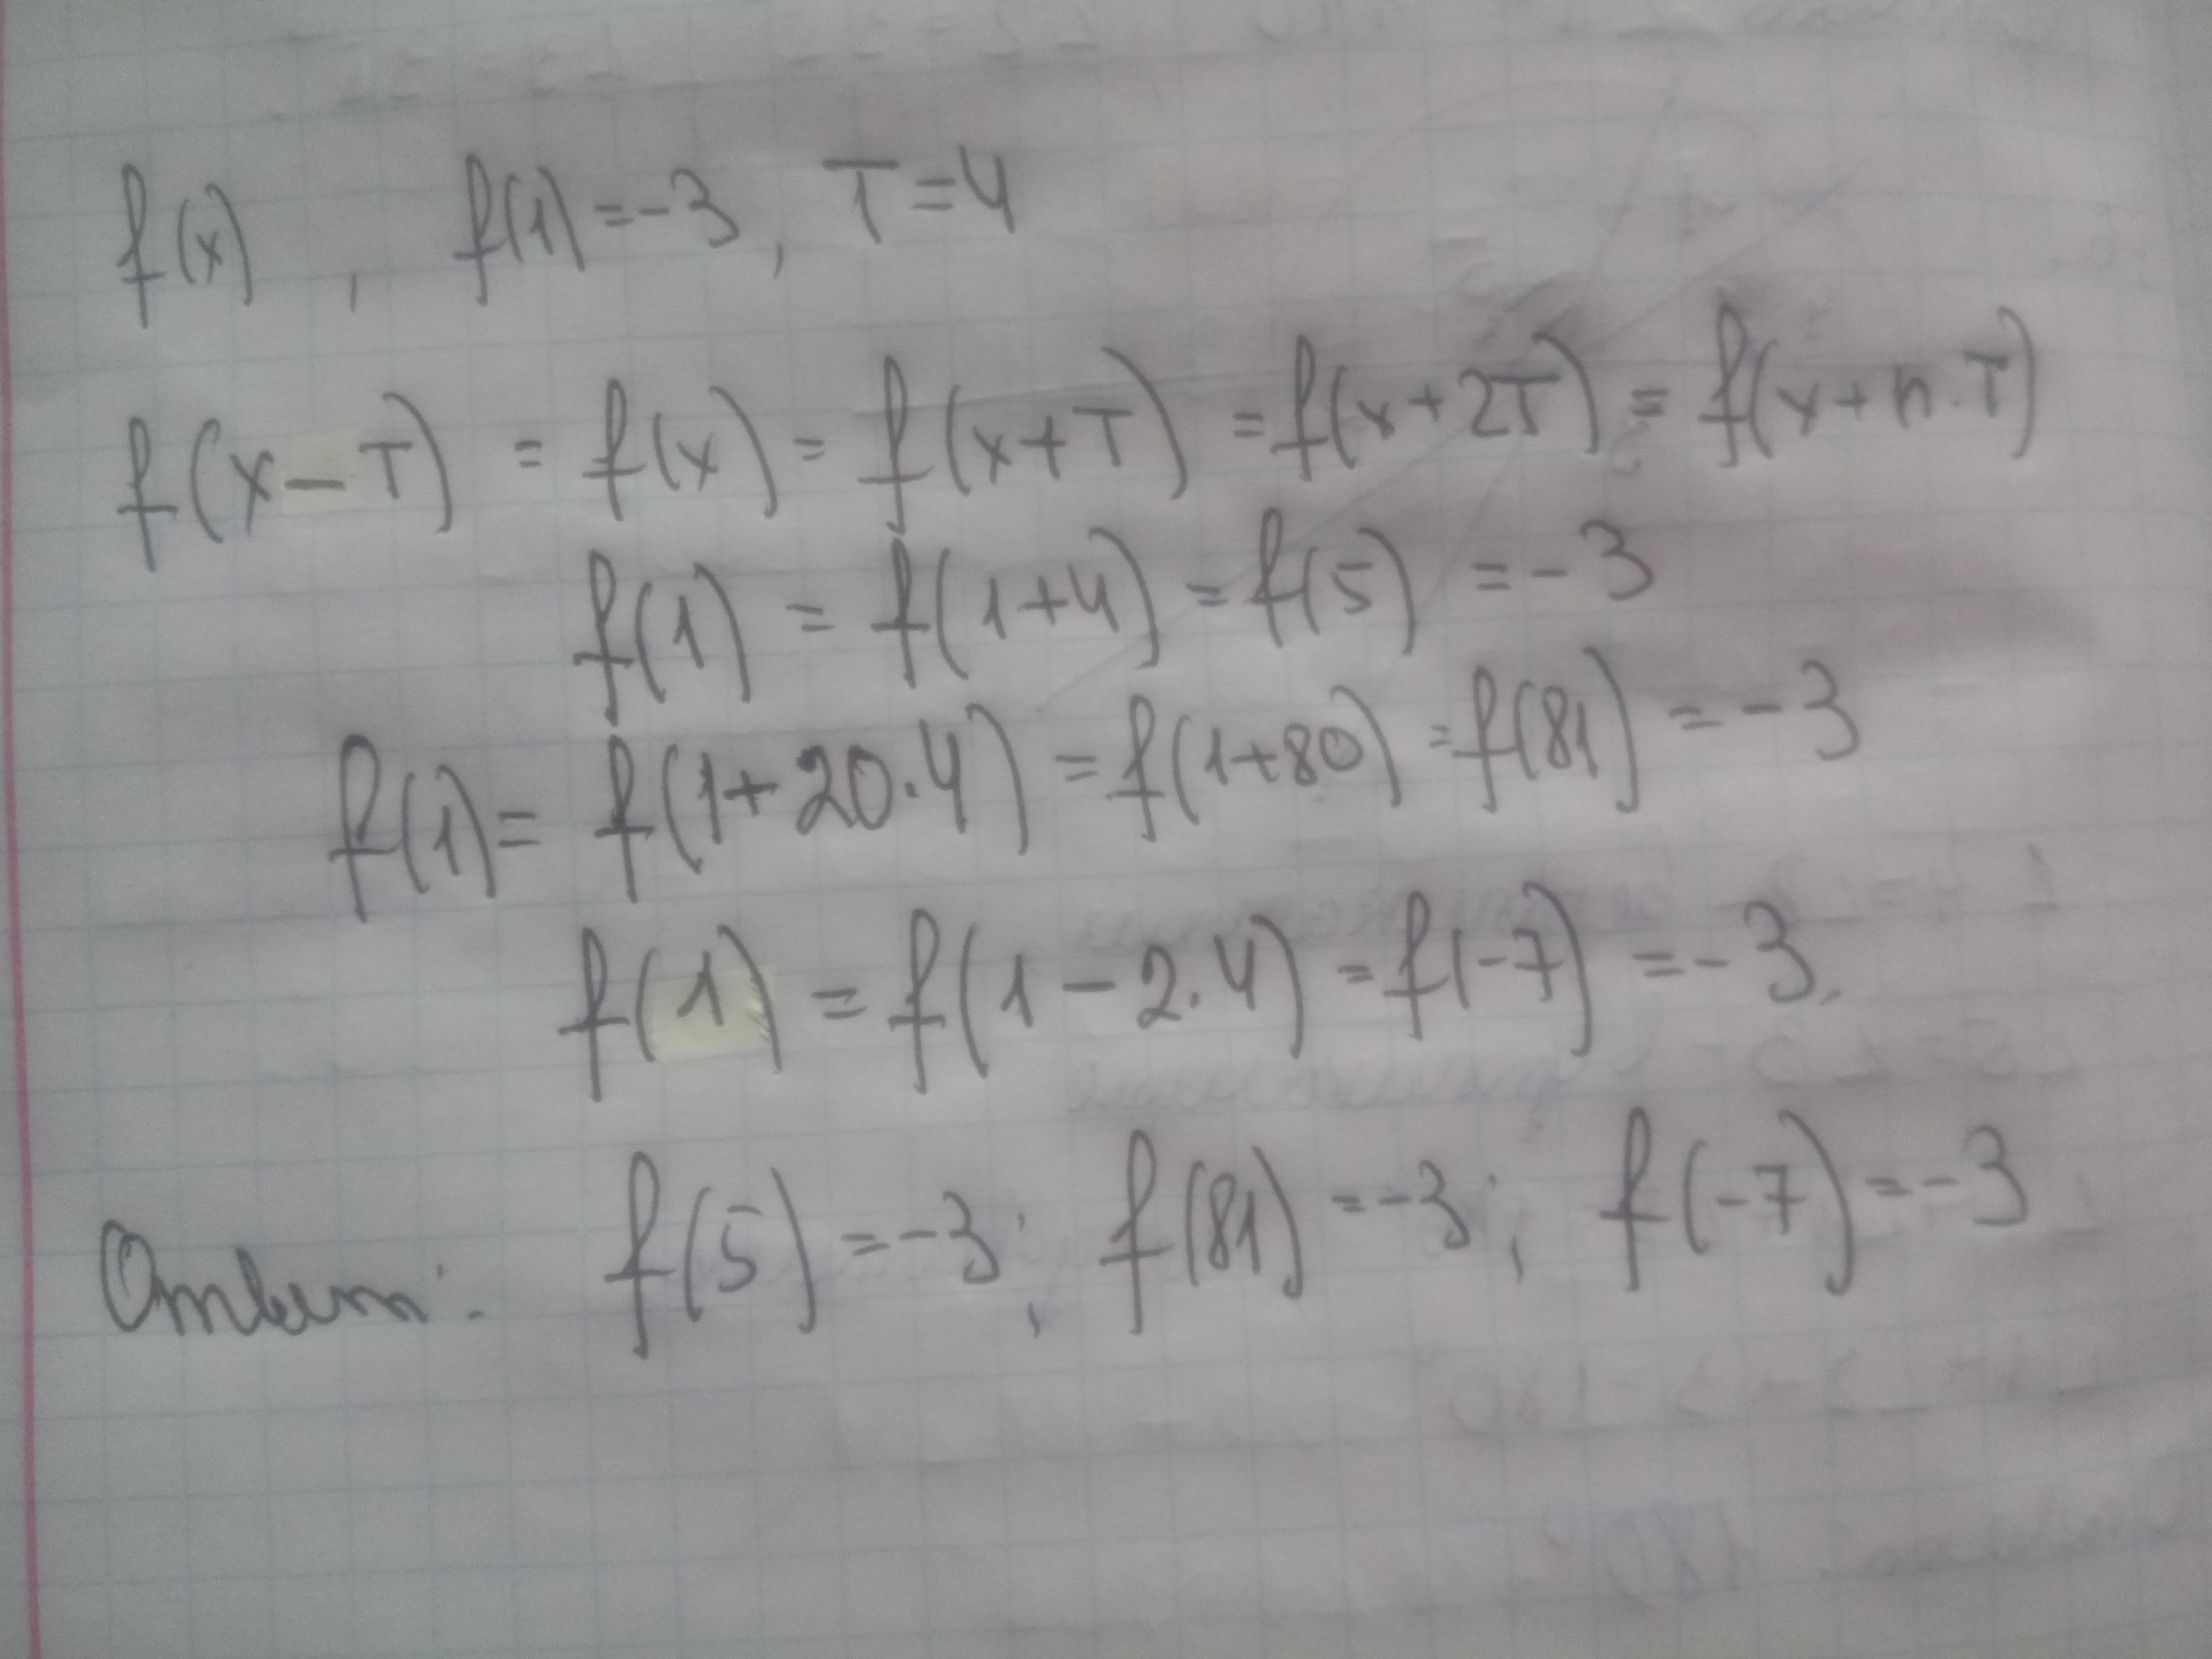 f(x) , f(1)=-3, T=4
f(x-T) = f(x) = f(x+T) = f(x+2T) = f(x+n.T)
f(1) = f(1+4) = f(5) = -3
f(1) = f(1+20.4) = f(1+80) = f(81) = -3
f(1) = f(1-2.4) = f(-7) = -3.
Ответ: f(5) = -3; f(81) = -3; f(-7) = -3